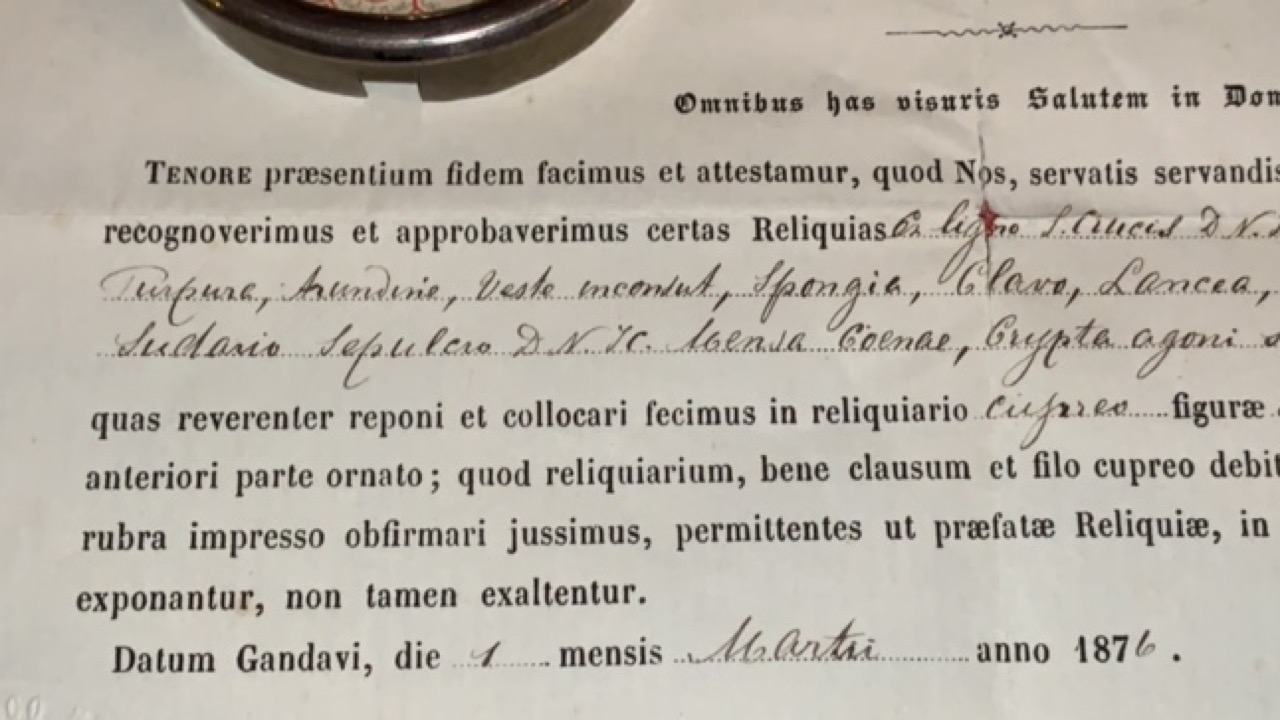 Omnibus has visuris Salutem in Dom
TENORE præsentium fidem facimus et attestamur, quod Nos, servatis servandis
recognoverimus et approbaverimus certas Reliquias Ex ligno S. Crucis D.N.
Purpura, Arundine, Veste inconsut, Spongia, Clavo, Lancea,
Sudario Sepulcro D.N.JC. Mensa Coenae, Crypta agoni
quas reverenter reponi et collocari fecimus in reliquiario cupreo figuræ
anteriori parte ornato; quod reliquiarium, bene clausum et filo cupreo debit
rubra impresso obfirmari jussimus, permittentes ut præfatæ Reliquiæ, in
exponantur, non tamen exaltentur.
Datum Gandavi, die 1 mensis Martii anno 1876.